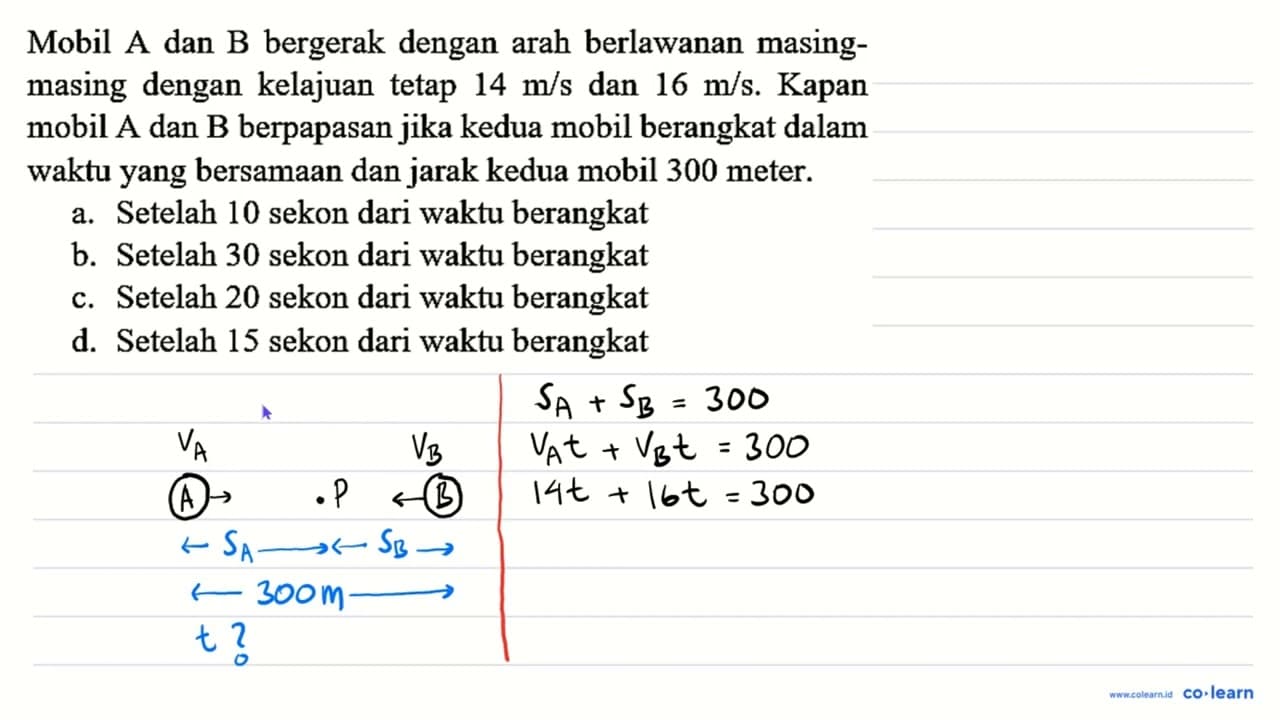 Mobil A dan B bergerak dengan arah berlawanan masing-
masing dengan kelajuan tetap 14 m/s dan 16 m/s. Kapan
mobil A dan B berpapasan jika kedua mobil berangkat dalam
waktu yang bersamaan dan jarak kedua mobil 300 meter.
a. Setelah 10 sekon dari waktu berangkat
b. Setelah 30 sekon dari waktu berangkat
c. Setelah 20 sekon dari waktu berangkat
d. Setelah 15 sekon dari waktu berangkat
V_A V_B
A → . P ← B
← S_A → ← S_B →
← 300 m →
t ?
S_A + S_B = 300
V_A t + V_B t = 300
14t + 16t = 300
www.colearn.id co·learn